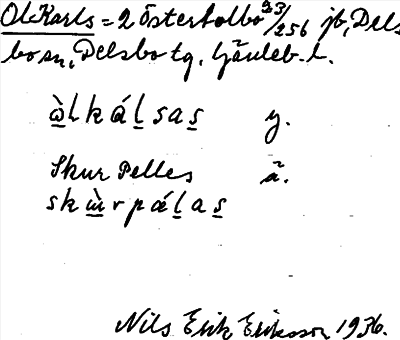 Ol-Karls = 2 Österbolbo 23/256 jb, Dels
bo sn, Delsbo tg, Gävleb. l.
ə̀l k á l s a s y.
Skur Pelles ä.
s k ù r p á l a s
Nils Erik Eriksson 1936.